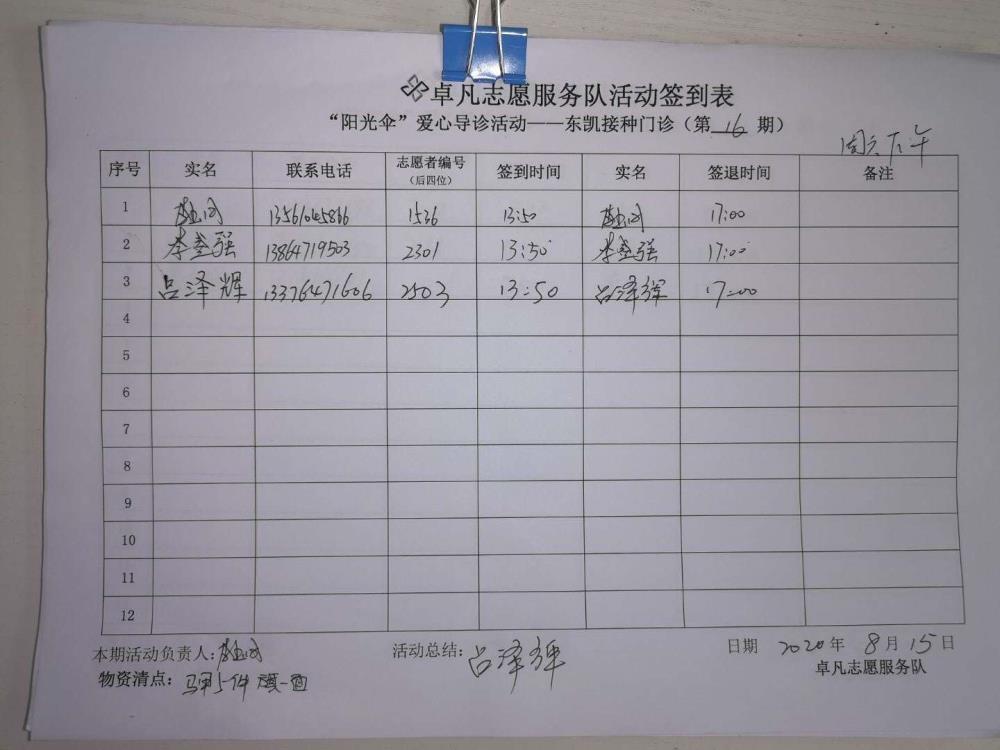 卓凡志愿服务队活动签到表
“阳光伞”爱心导诊活动——东凯接种门诊（第 16 期）
周六下午
序号 实名 联系电话 志愿者编号（后四位） 签到时间 实名 签退时间 备注
1 13561045866 1536 13:50 17:00
2 李奎强 13864719503 2301 13:50 李奎强 17:00
3 吕泽辉 13376471606 2503 13:50 吕泽辉 17:00
4
5
6
7
8
9
10
11
12
本期活动负责人: 活动总结: 吕泽辉 日期 2020 年 8 月 15 日
物资清点: 马甲5件 旗一面 卓凡志愿服务队